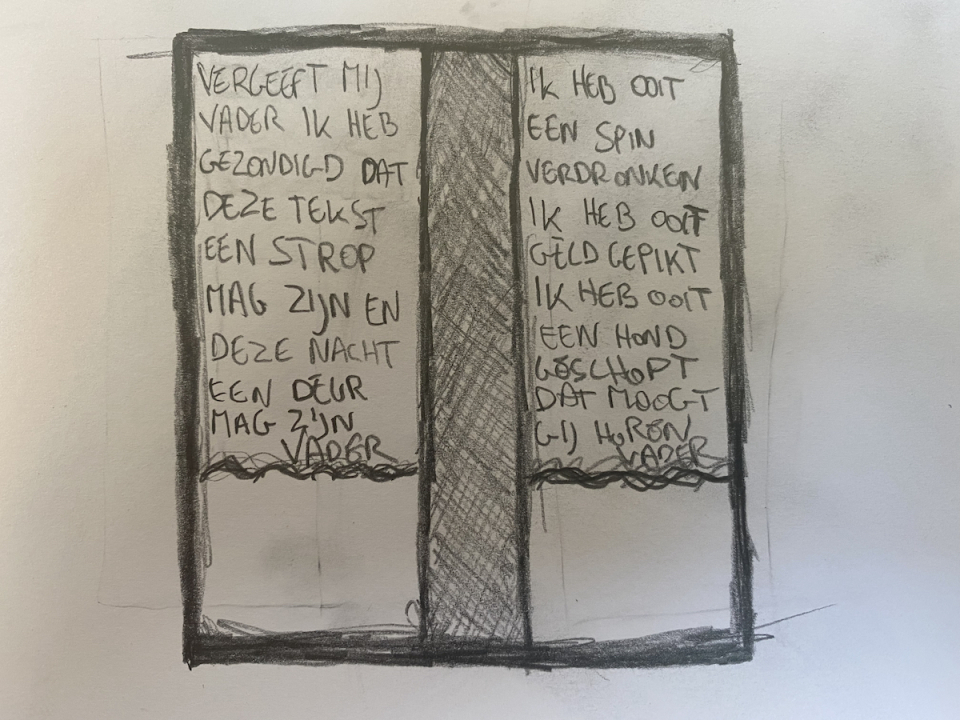 VERGEEFT MIJ
VADER IK HEB
GEZONDIGD DAT
DEZE TEKST
EEN STROP
MAG ZIJN EN
DEZE NACHT
EEN DEUR
MAG ZIJN
VADER
IK HEB OOIT
EEN SPIN
VERDRONKEN
IK HEB OOIT
GELD GEPIKT
IK HEB OOIT
EEN HOND
GESCHOPT
DAT MOOGT
GIJ HOREN
VADER